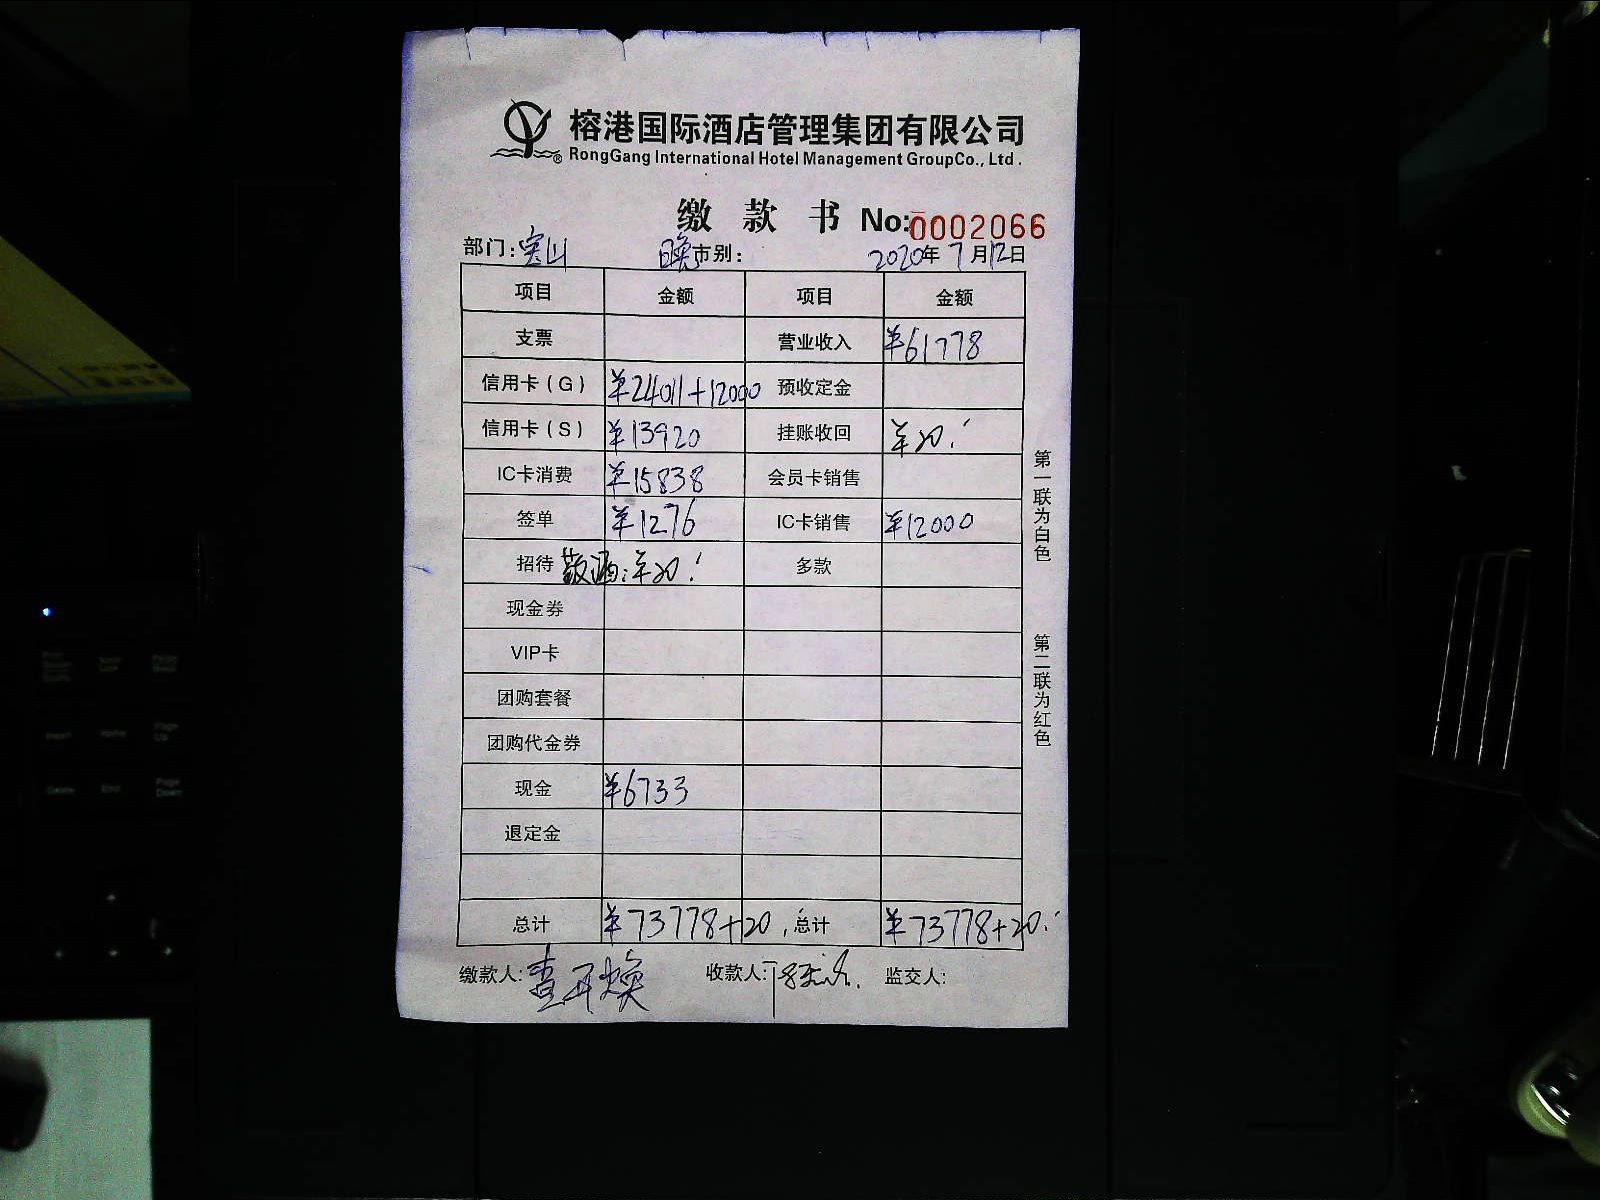 榕港国际酒店管理集团有限公司
RongGang International Hotel Management GroupCo., Ltd.
缴款书 No:0002066
部门: 宝山 晚市别: 2020年7月12日
项目 金额 项目 金额
支票 营业收入 ¥61778
信用卡(G) ¥24011+12000 预收定金
信用卡(S) ¥13920 挂账收回 ¥20.
IC卡消费 ¥15838 会员卡销售
签单 ¥1276 IC卡销售 ¥12000
招待 ¥20. 多款
现金券
VIP卡
团购套餐
团购代金券
现金 ¥6733
退定金
总计 ¥73778+20. 总计 ¥73778+20.
缴款人: 收款人: 监交人:
第一联为白色
第二联为红色
Page Up
Page Down
End